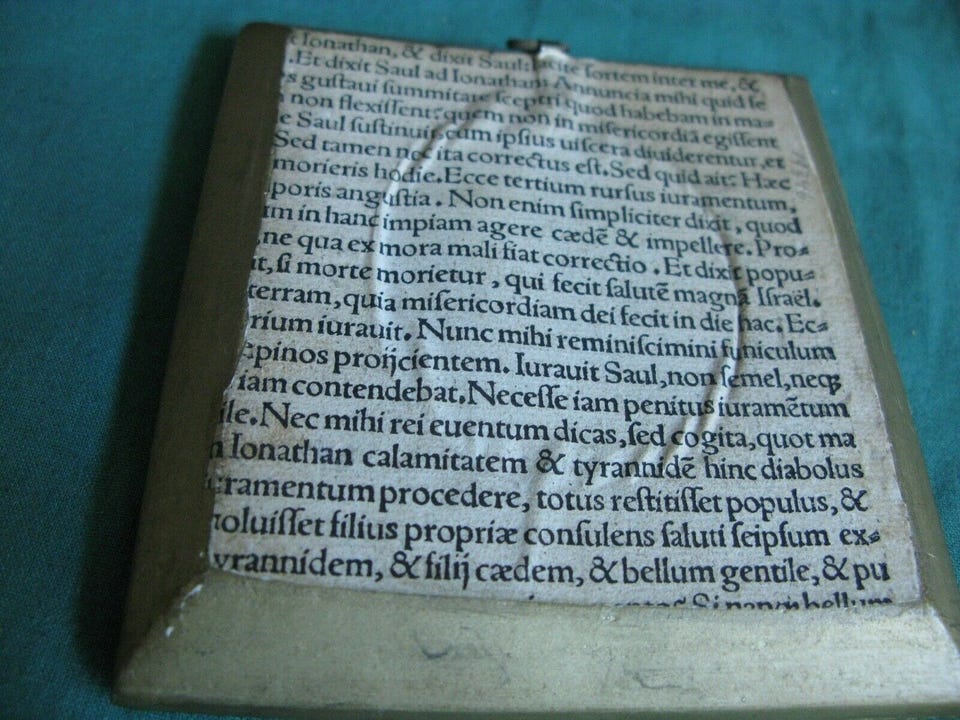 Ionathan, & dixit Saul: mittite sortem inter me, &
.Et dixit Saul ad Ionathan Annuncia mihi quid fe
s gustaui summitate sceptri quod habebam in ma-
non flexissent: quem non in misericordiā egissent
e Saul sustinuit cum ipsius uiscera diuiderentur, et
Sed tamen nec ita correctus est. Sed quid ait: Hæc
morieris hodie. Ecce tertium rursus iuramentum,
poris angustia. Non enim simpliciter dixit, quod
im in hanc impiam agere cædē & impellere. Pro-
,ne qua ex mora mali fiat correctio. Et dixit popu-
it, si morte morietur, qui fecit salutē magnā Israël.
terram, quia misericordiam dei fecit in die hac. Ec-
rium iurauit. Nunc mihi reminiscimini funiculum
spinos proijcientem. Iurauit Saul, non semel, neqꝫ
iam contendebat. Necesse iam penitus iuramētum
ile. Nec mihi rei euentum dicas, sed cogita, quot ma
n Ionathan calamitatem & tyrannidē hinc diabolus
cramentum procedere, totus restitisset populus, &
uoluisset filius propriæ consulens saluti seipsum ex-
tyrannidem, & filij cædem, & bellum gentile, & pu
Si nanqꝫ bellum